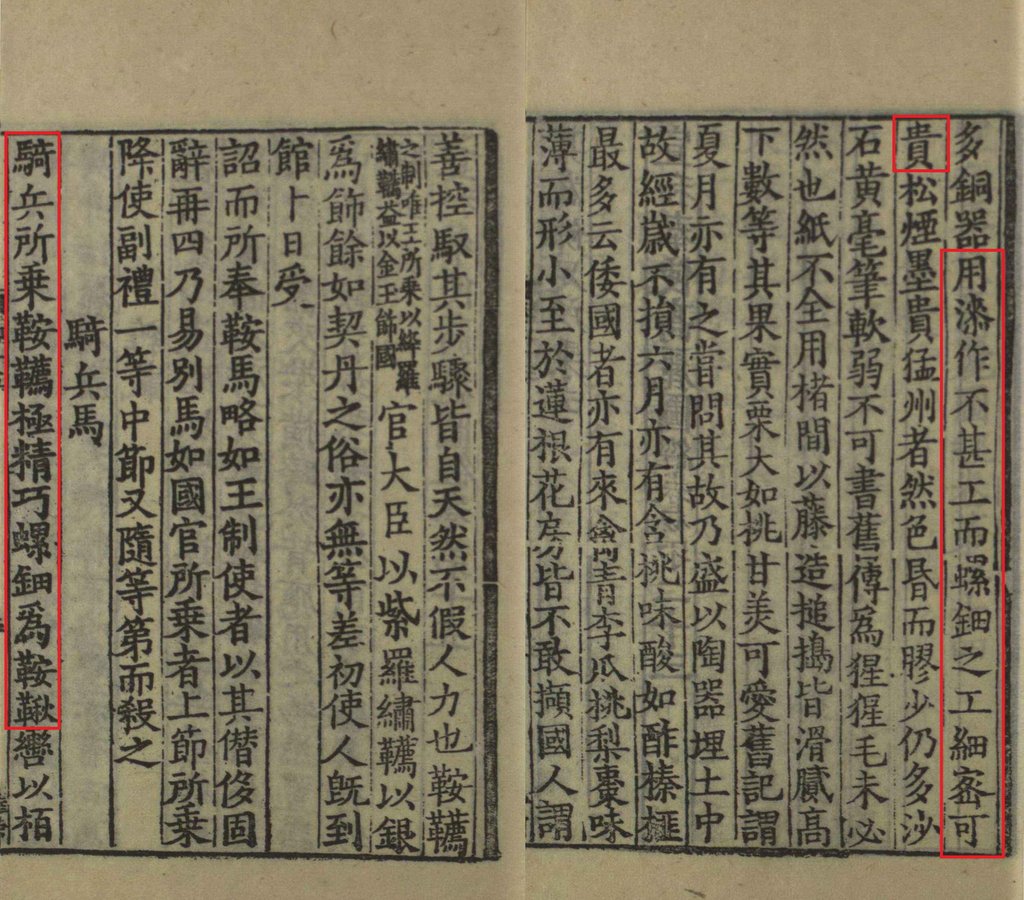 多銅器用漆作不甚工而螺鈿之工細密可
貴松煙墨貴猛州者然色昏而膠少仍多沙
石黃毫筆軟弱不可書舊傳爲猩猩毛未必
然也紙不全用楮間以藤造搥搗皆滑膩高
下數等其果實栗大如桃甘美可愛舊記謂
夏月亦有之嘗問其故乃盛以陶器埋土中
故經歲不損六月亦有含桃味酸如酢榛榧
最多云倭國者亦有來禽青李瓜桃梨棗味
薄而形小至於蓮根花房皆不敢擷國人謂
善控馭其步驟皆自天然不假人力也鞍韉
之制唯王所乘以絳羅
繡韉益以金玉飾國
官大臣以紫羅繡韉以銀
爲飾餘如契丹之俗亦無等差初使人既到
館卜日受
詔而所奉鞍馬略如王制使者以其僭侈固
辭再四乃易別馬如國官所乘者上節所乘
降使副禮一等中節又隨等第而殺之
騎兵馬
騎兵所乘鞍韉極精巧螺鈿爲鞍鞦轡以栢